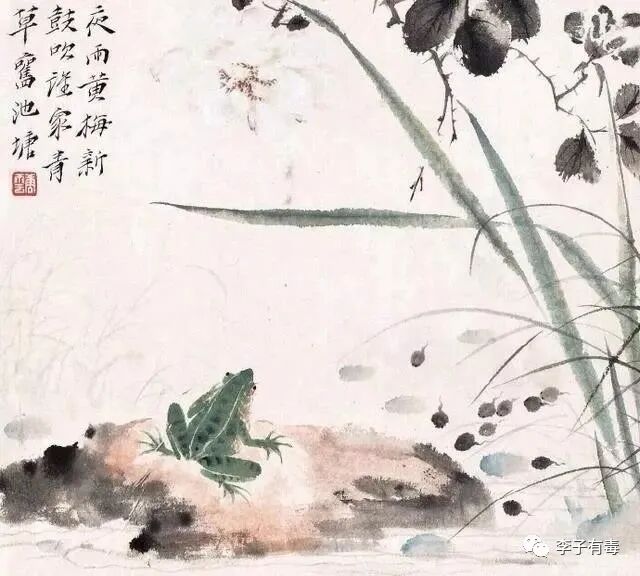 夜雨黄梅新
鼓吹誰家青
草舊池塘
李子有毒